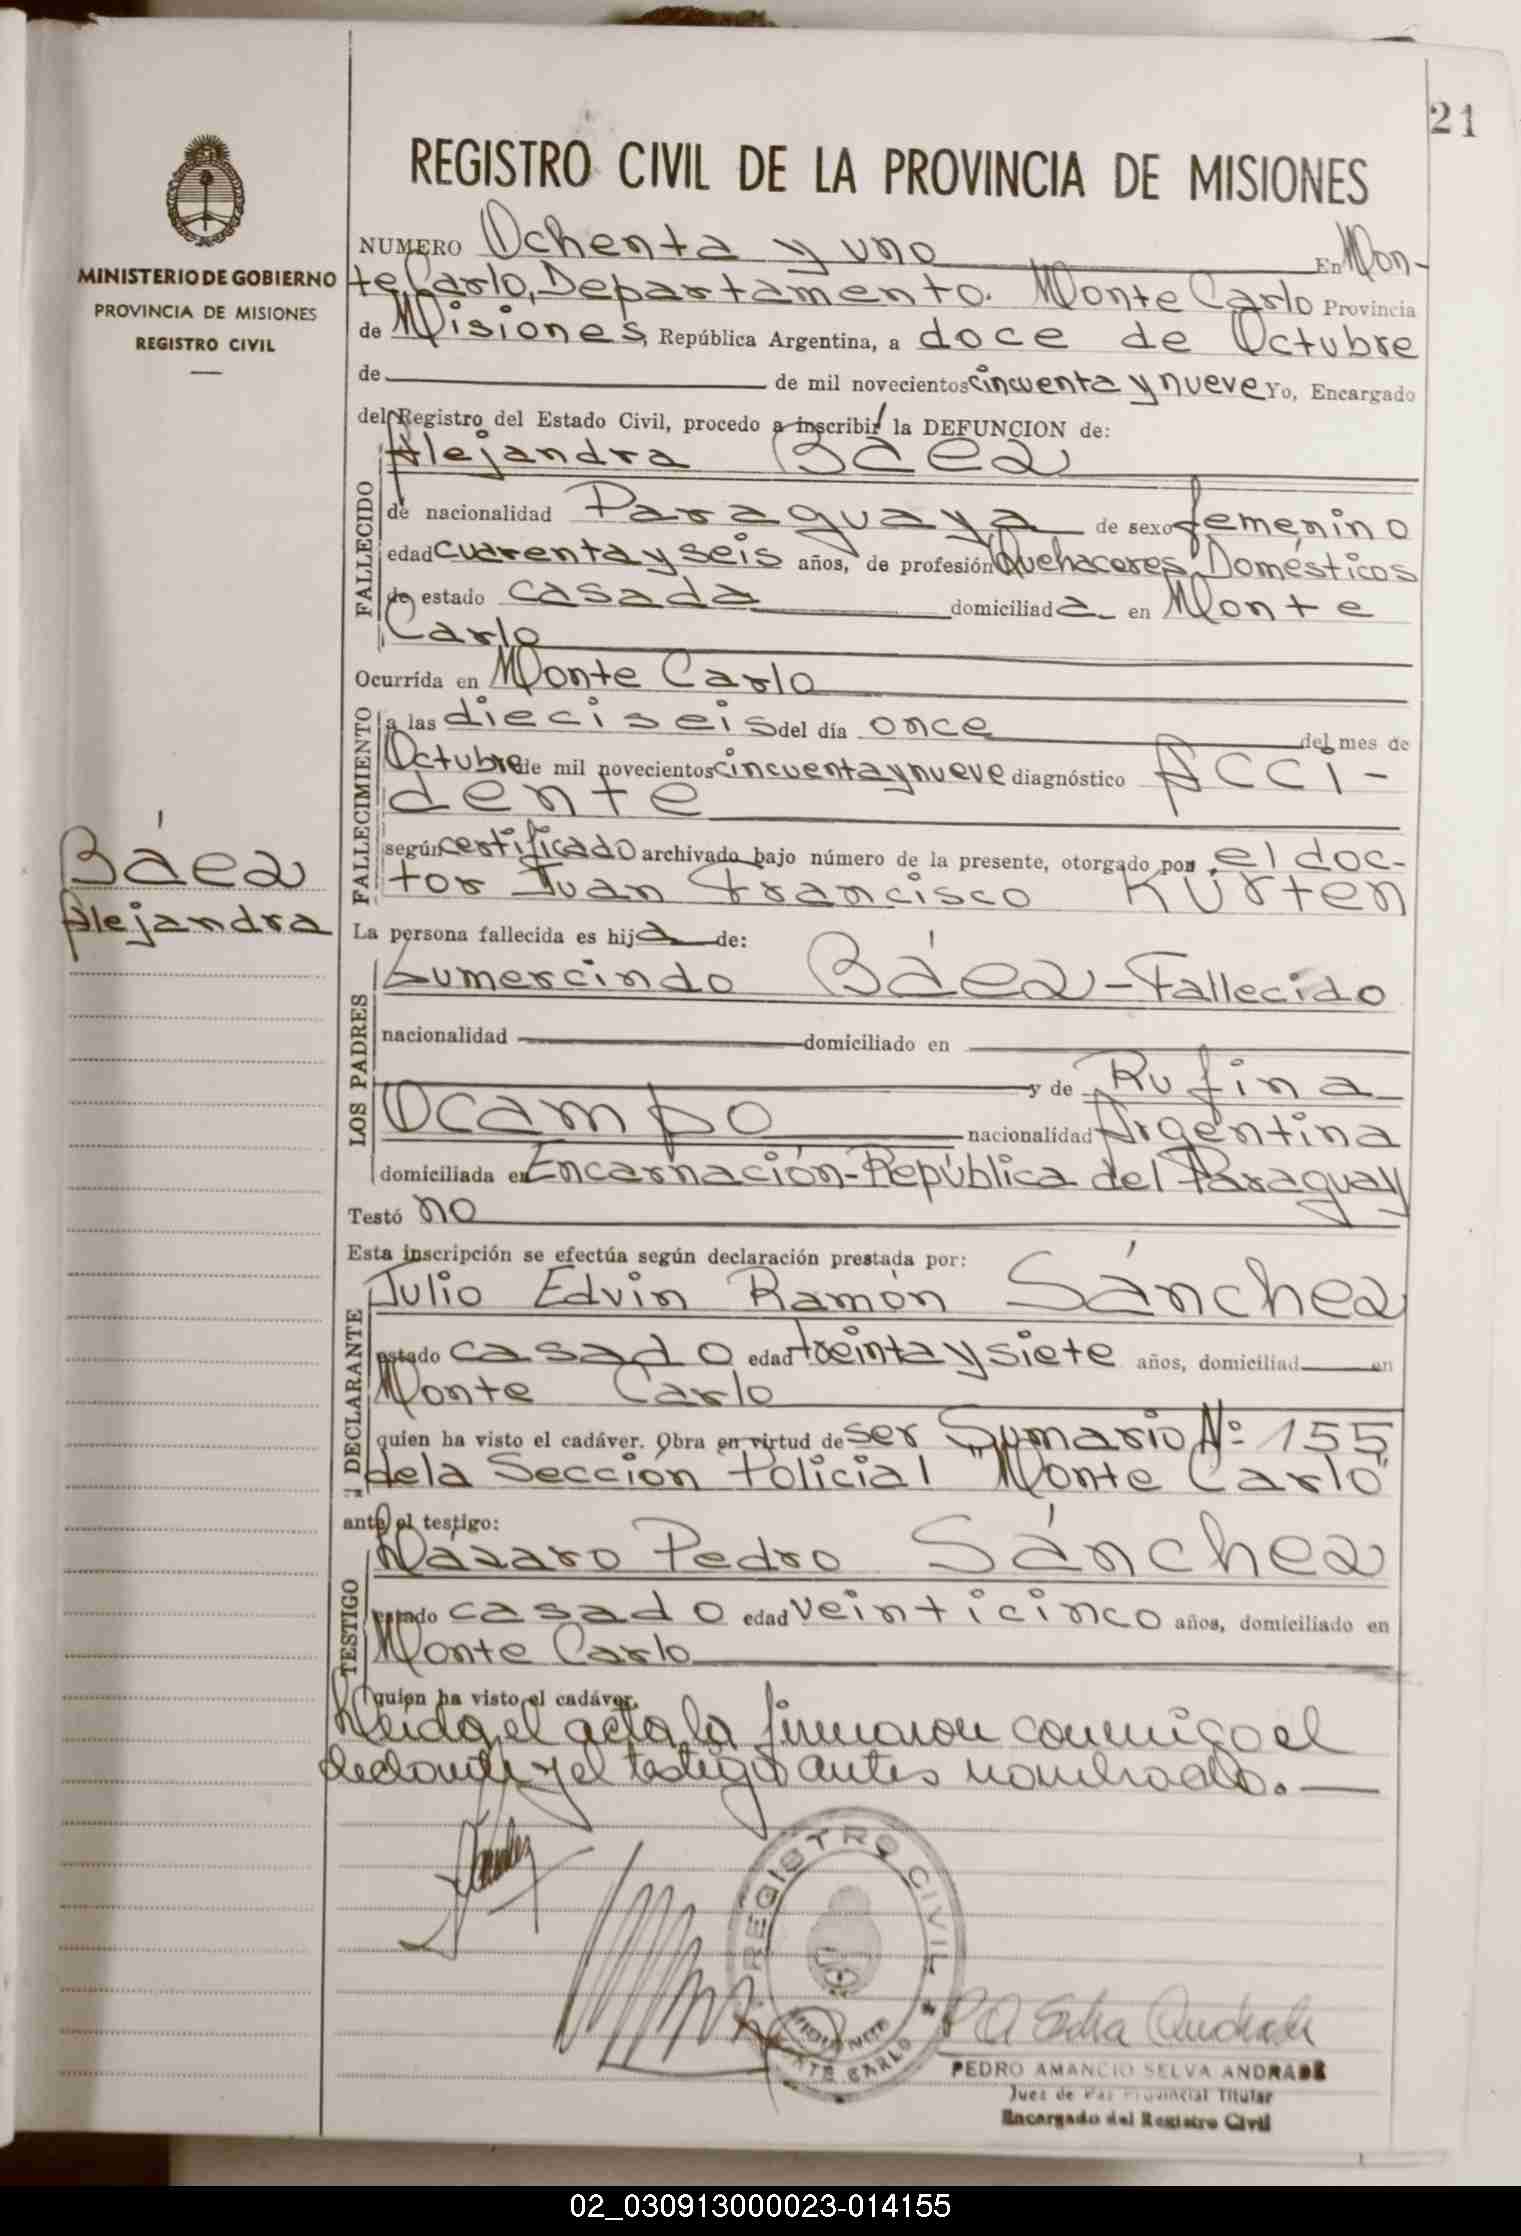 21
MINISTERIO DE GOBIERNO
PROVINCIA DE MISIONES
REGISTRO CIVIL
Báez
Alejandra
REGISTRO CIVIL DE LA PROVINCIA DE MISIONES
NUMERO Ochenta y uno En Mon-
te Carlo, Departamento. Monte Carlo Provincia
de Misiones, República Argentina, a doce de Octubre
de de mil novecientos cincuenta y nueve Yo, Encargado
del Registro del Estado Civil, procedo a inscribir la DEFUNCION de:
Alejandra Báez
FALLECIDO
de nacionalidad Paraguaya de sexo femenino
edad cuarenta y seis años, de profesión Quehaceres Domésticos
de estado casada domiciliada en Monte
Carlo
Ocurrida en Monte Carlo
FALLECIMIENTO
a las dieciseis del día once del mes de
Octubre de mil novecientos cincuenta y nueve diagnóstico Acci-
dente
según certificado archivado bajo número de la presente, otorgado por el doc-
tor Juan Francisco Kürten
La persona fallecida es hija de:
LOS PADRES
Gumercindo Báez - Fallecido
nacionalidad domiciliado en
y de Rufina
Ocampo nacionalidad Argentina
domiciliada en Encarnación - República del Paraguay
Testó no
Esta inscripción se efectúa según declaración prestada por:
DECLARANTE
Julio Edvin Ramón Sánchez
estado casado edad treinta y siete años, domiciliad en
Monte Carlo
quien ha visto el cadáver. Obra en virtud de ser Sumario Nº 155
de la Sección Policial "Monte Carlo"
ante el testigo:
TESTIGO
Názaro Pedro Sánchez
estado casado edad veinticinco años, domiciliado en
Monte Carlo
quien ha visto el cadáver.
Leída el acta, la firmaron conmigo el
declarante y el testigo antes nombrado.
REGISTRO CIVIL
MONTE CARLO
P A Selva Andrade
PEDRO AMANCIO SELVA ANDRADE
Juez de Paz Provincial Titular
Encargado del Registro Civil
02_030913000023-014155